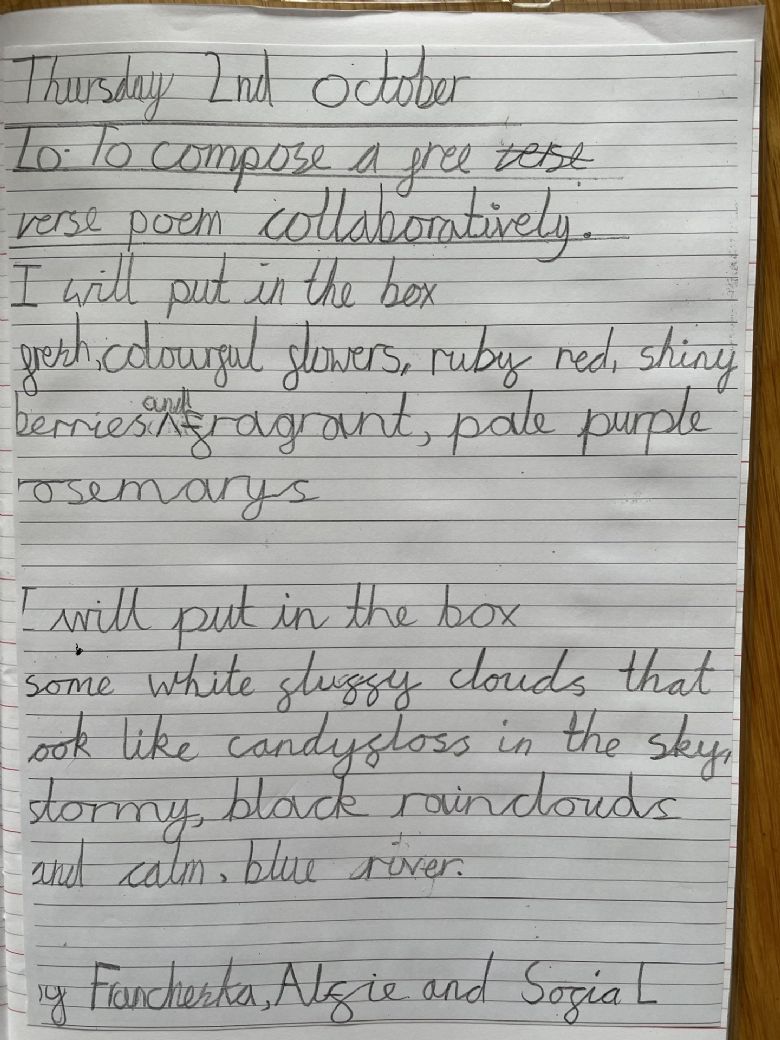 Thursday 2nd October
Lo: To compose a free verse
verse poem collaboratively.
I will put in the box
fresh, colourful flowers, ruby red, shiny
berries, and fragrant, pale purple
rosemarys
I will put in the box
some white fluffy clouds that
ook like candyfloss in the sky,
stormy, black rainclouds
and calm, blue river.
y Francheska, Alfie and Sofia L